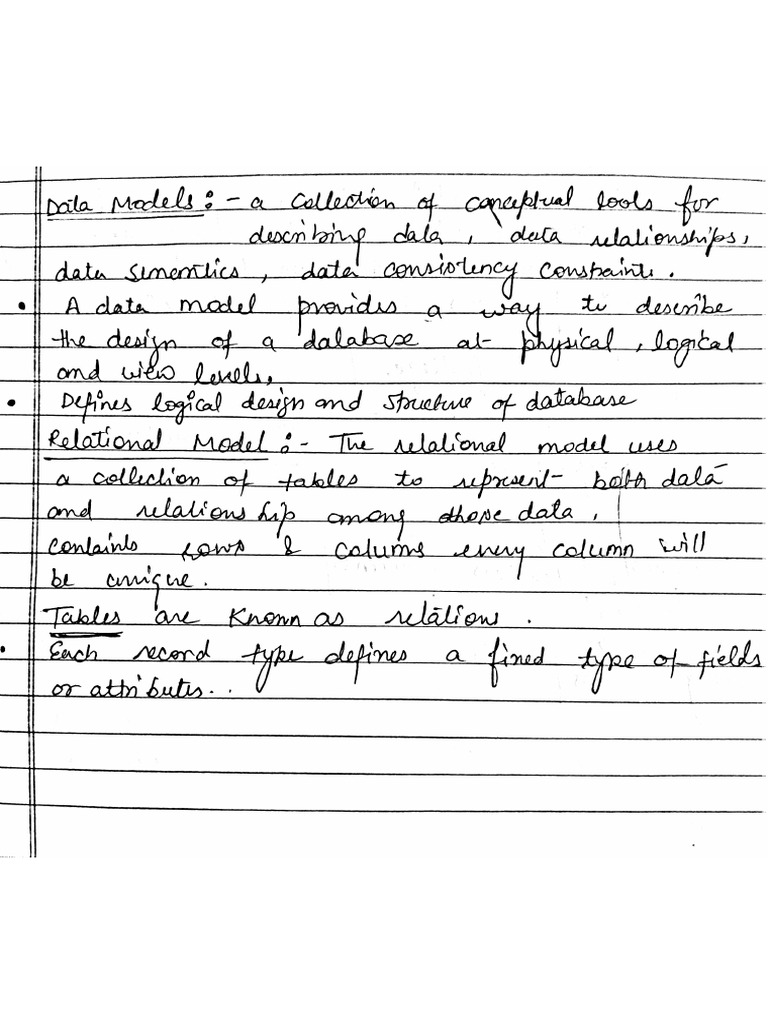 Data Models :- a collection of conceptual tools for
describing data, data relationships,
data sementics, data consistency constraints.
• A data model provides a way to describe
the design of a database at physical, logical
and view levels,
• Defines logical design and structure of database
Relational Model :- The relational model uses
a collection of tables to represent both data
and relationship among those data,
containts rows & colums every column will
be unique.
Tables are known as relations.
• Each record type defines a fined type of fields
or attributes..